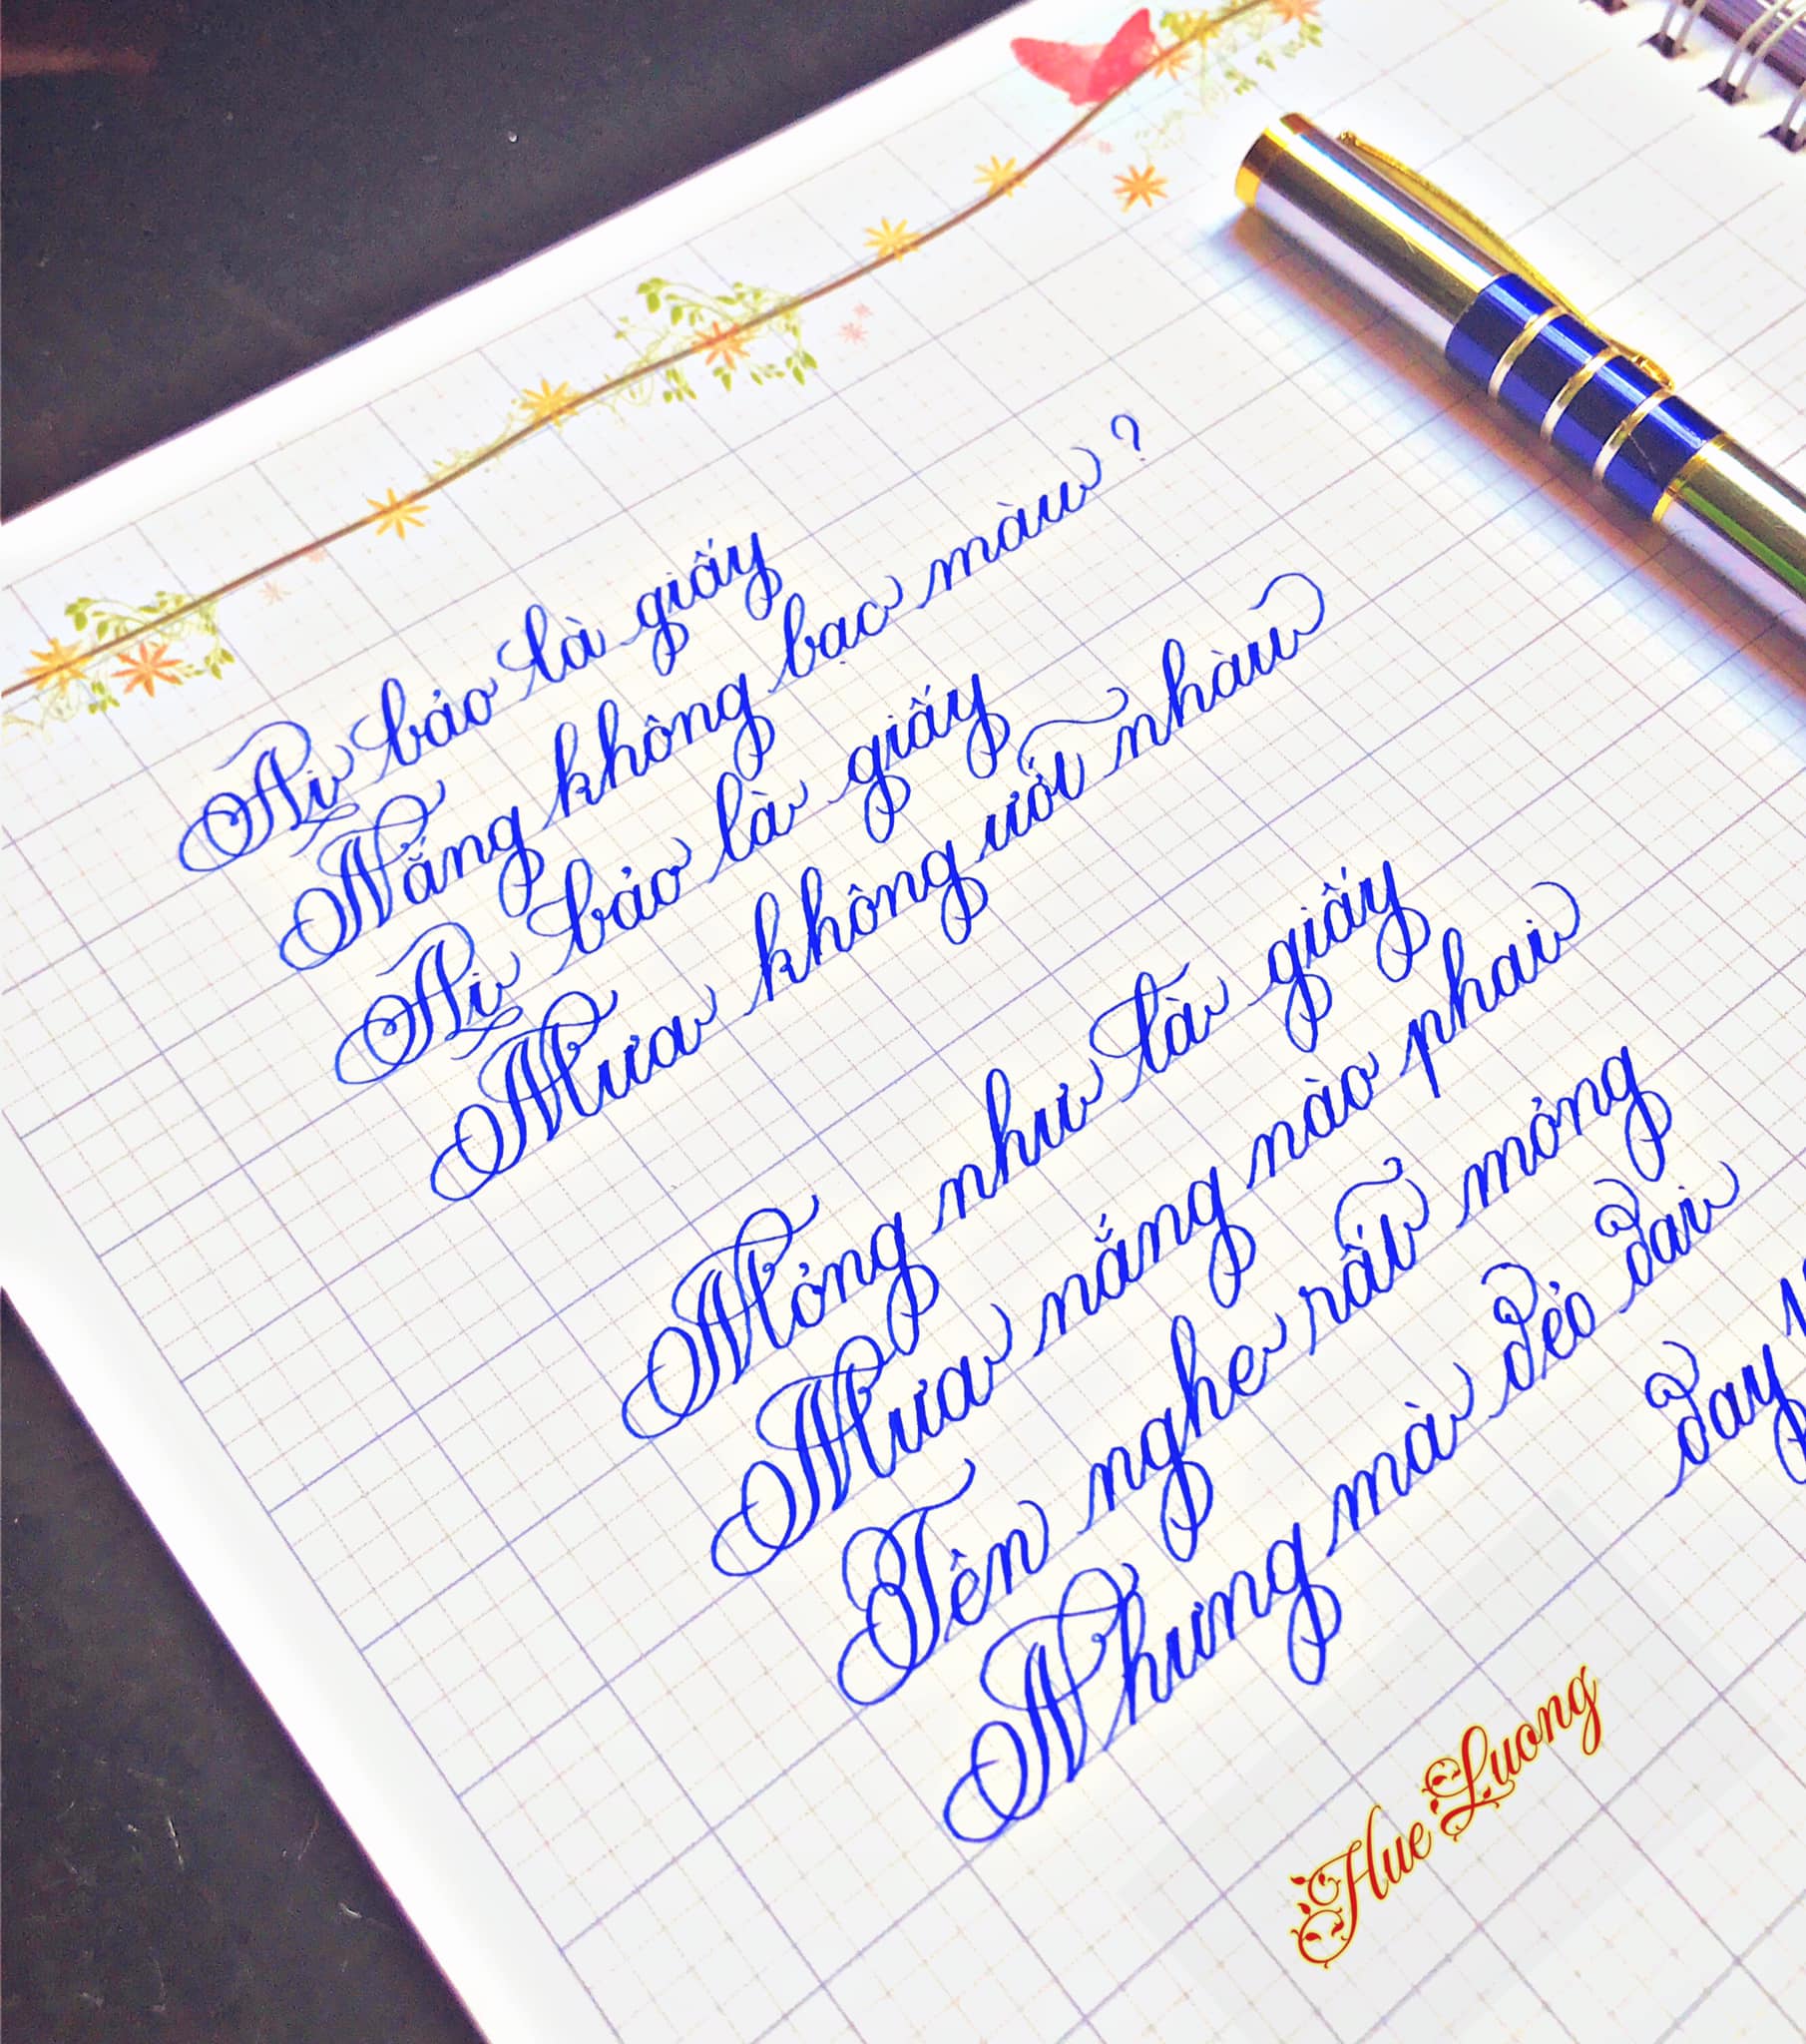 Ai bảo là giấy
Nắng không bạc màu?
Ai bảo là giấy
Mưa không ướt nhàu
Mỏng như là giấy
Mưa nắng nào phai
Tên nghe rất mỏng
Nhưng mà dẻo dai
day
Hue Luong